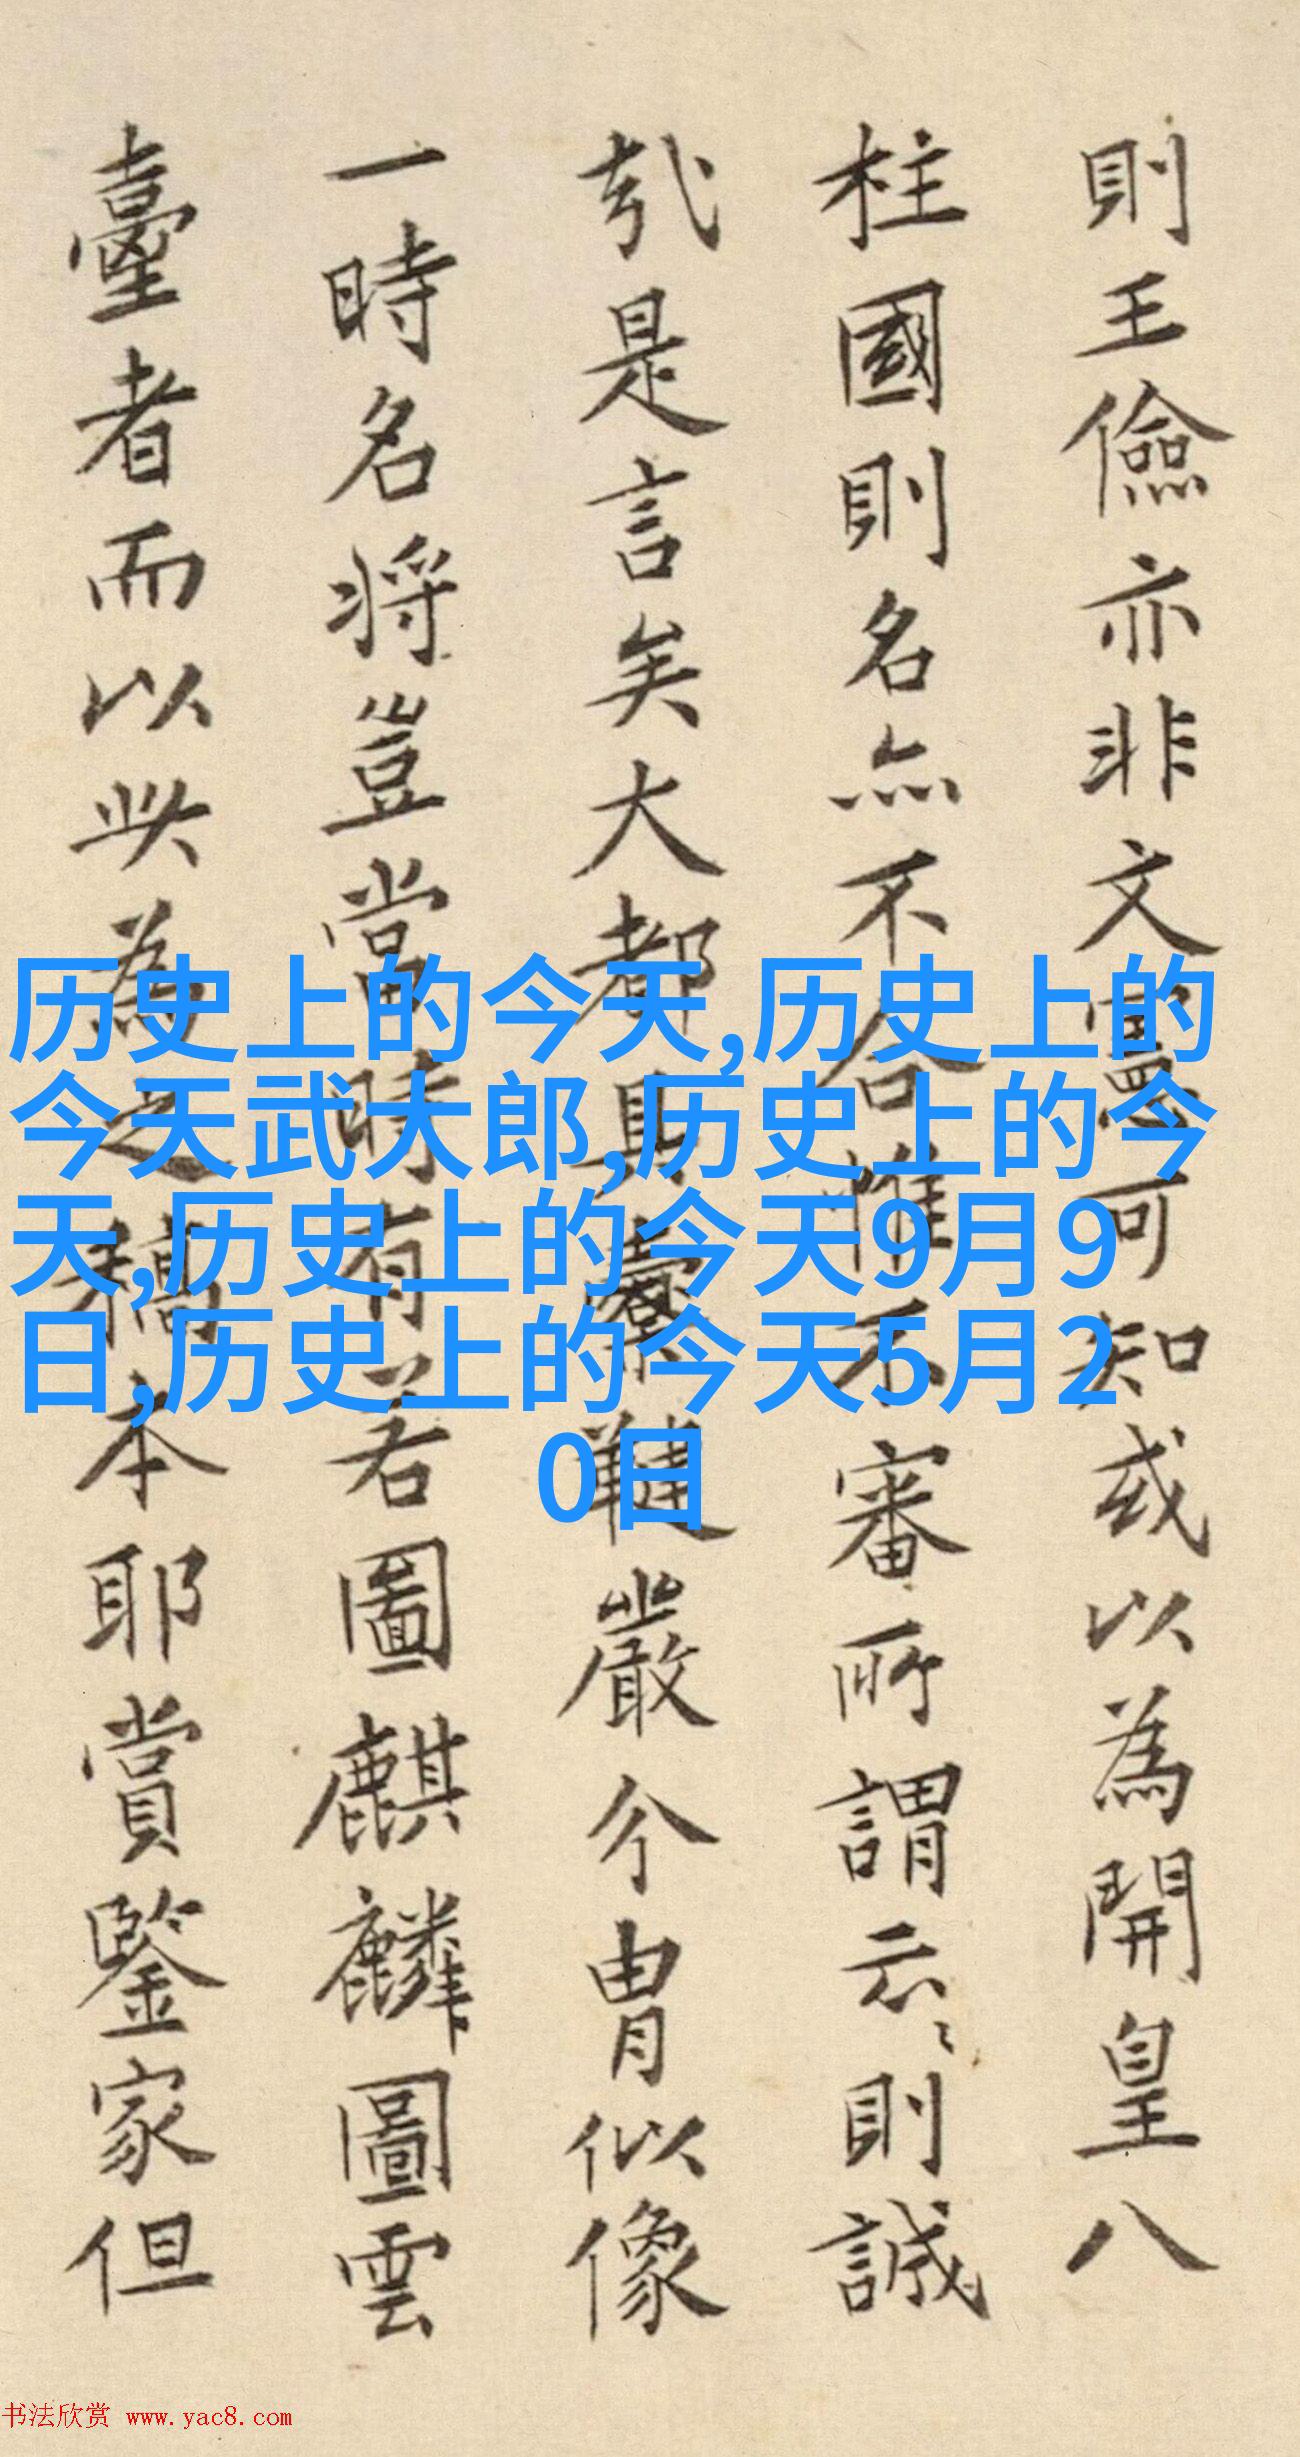 則王儉亦非文憲可知或以為開皇八
柱國則名無不合惟不審所謂云云則誠
哉是言矣大都具櫜鞬嚴介胄似像
一時名將豈當時有若圖麒麟圖雲
臺者而以此為之稿本耶賞鑒家但
历史上的今天,历史上的
今天武大郎,历史上的今
天,历史上的今天9月9
日,历史上的今天5月2
0日
书法欣赏 www.yac8.com